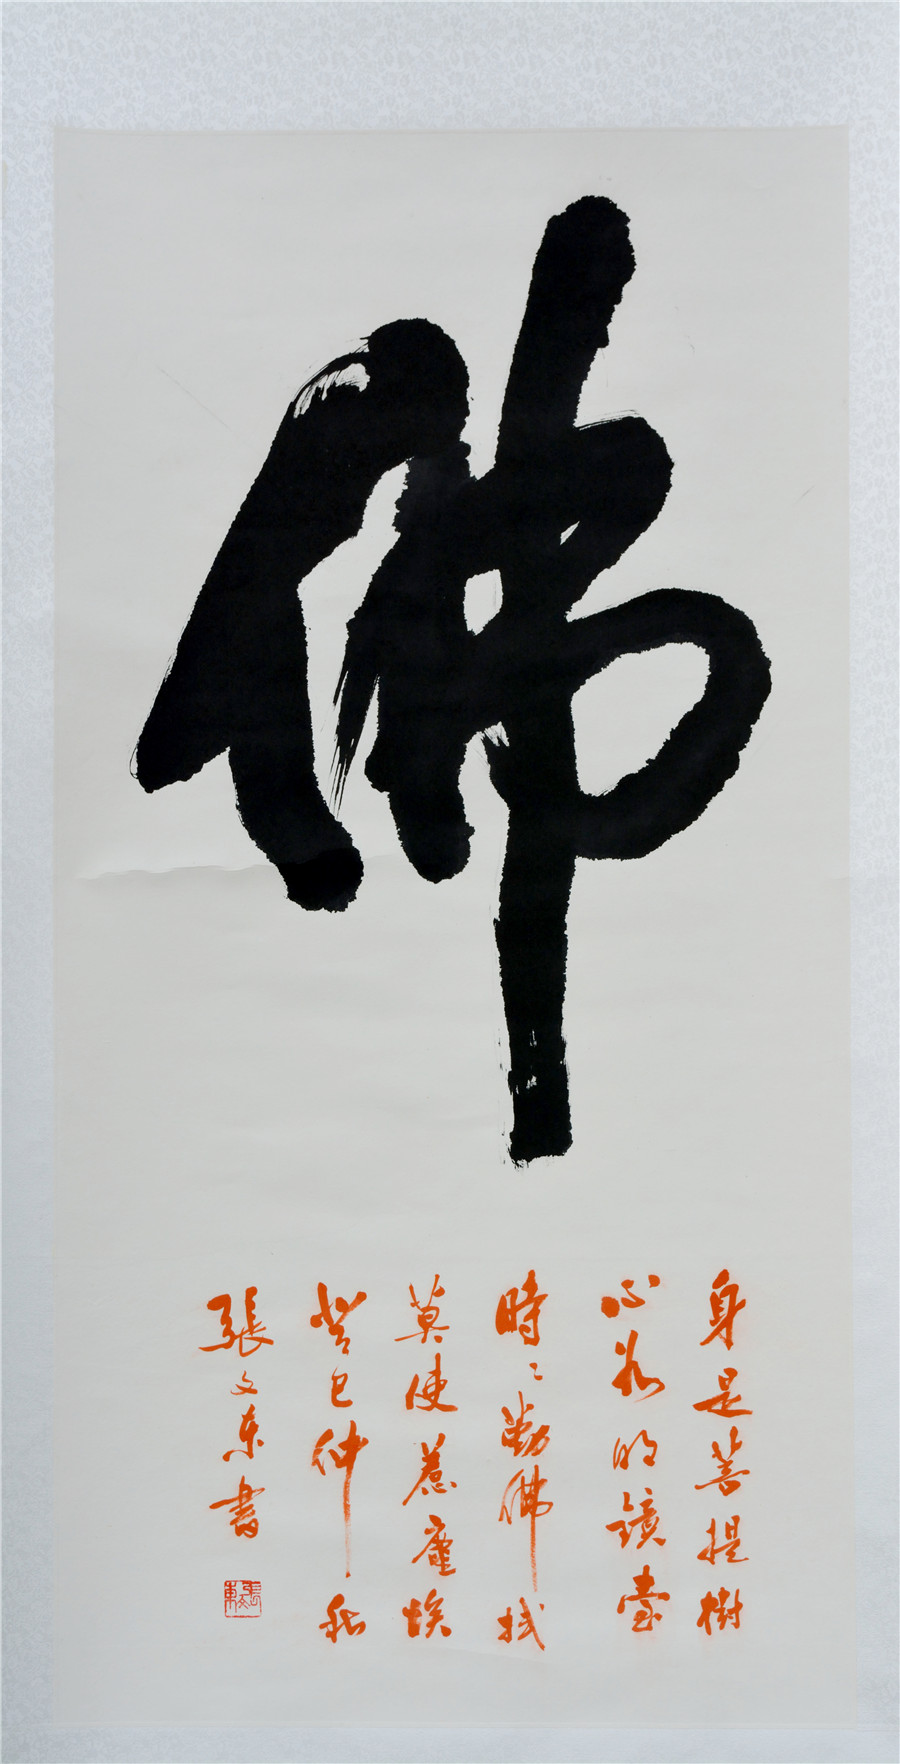 佛
身是菩提樹
心如明鏡臺
時〻勤佛拭
莫使惹塵埃
癸巳仲秋
張文東書
張文東